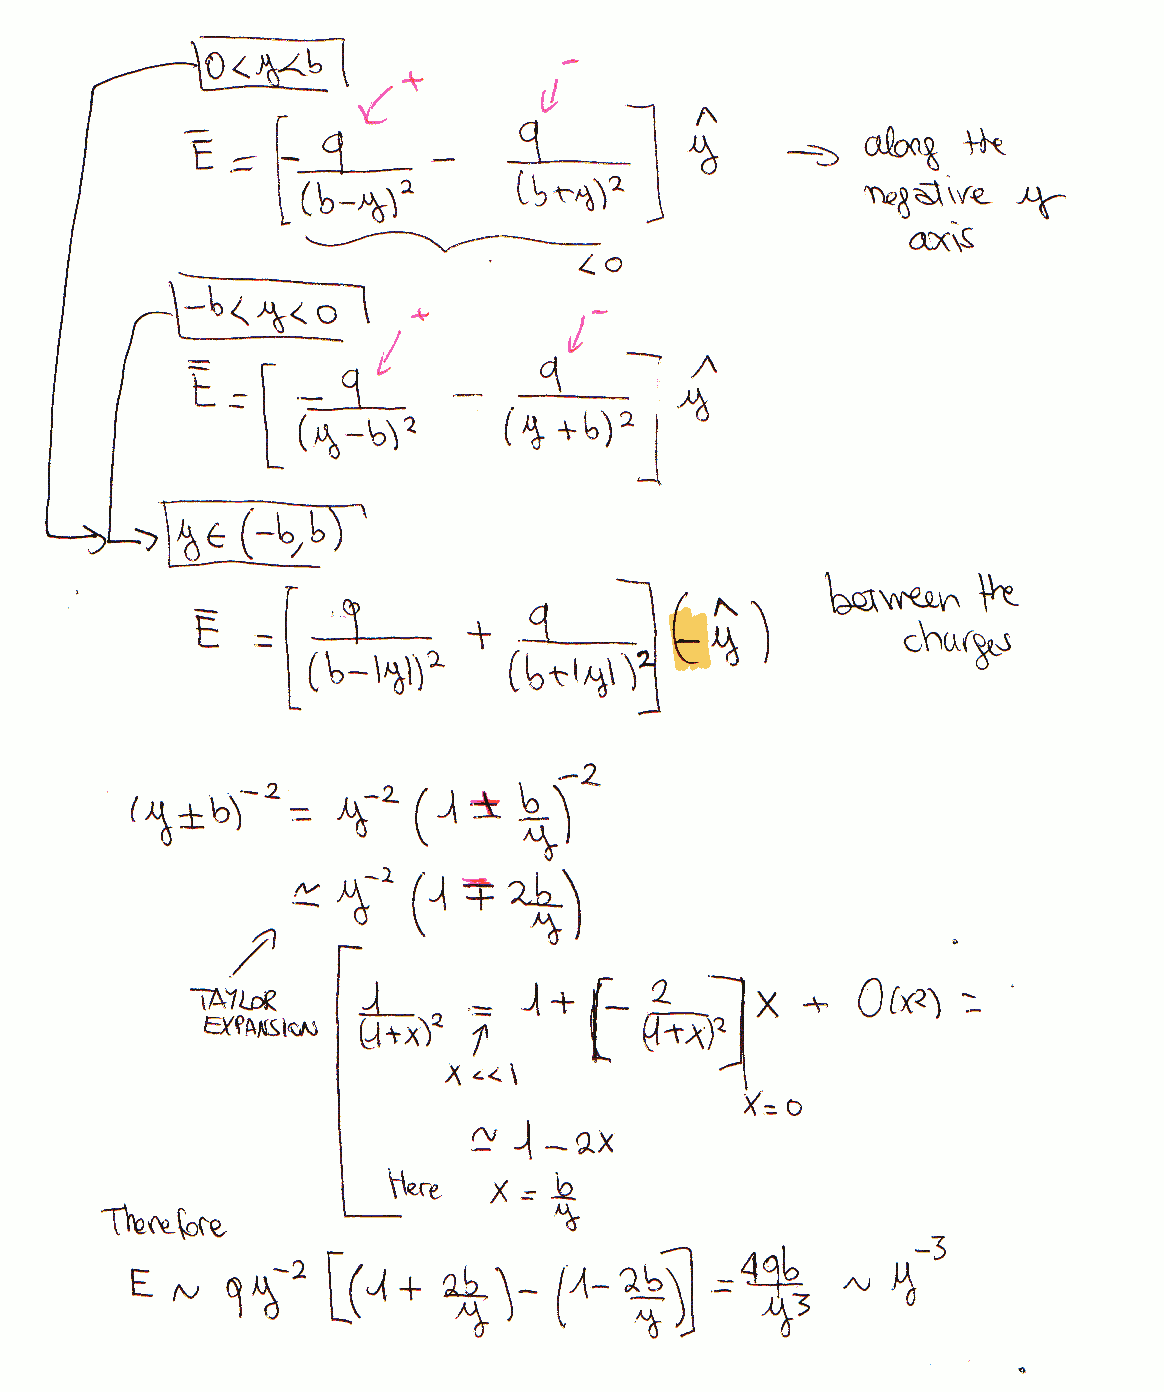 0 < y < b
+ −
E̅ = [ − q/(b−y)² − q/(b+y)² ] ŷ → along the
negative y
axis
< 0
−b < y < 0
+ −
E̅ = [ − q/(y−b)² − q/(y+b)² ] ŷ
y ∈ (−b, b)
E̅ = [ q/(b−|y|)² + q/(b+|y|)² ] (−ŷ) between the
charges
(y ± b)⁻² = y⁻² (1 ± b/y)⁻²
≃ y⁻² (1 ∓ 2b/y)
TAYLOR
EXPANSION
1/(1+x)² = 1 + [ − 2/(1+x)² ] x + O(x²) =
x << 1
x = 0
≃ 1 − 2x
Here x = b/y
Therefore
E ~ q y⁻² [ (1 + 2b/y) − (1 − 2b/y) ] = 4qb/y³ ~ y⁻³